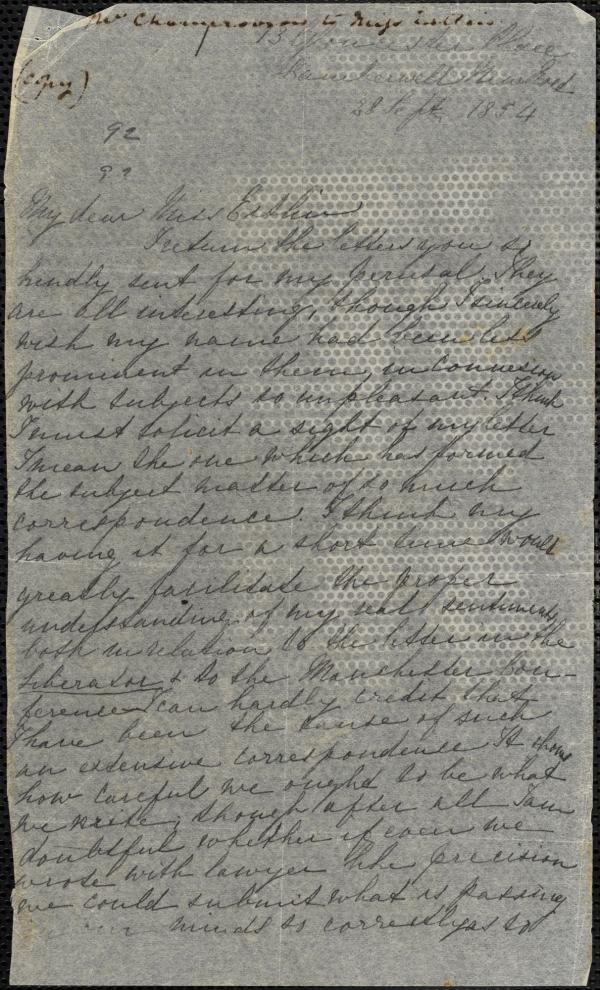 Mr Chamerovzow to Miss Estlin
13 Gloucester Place
(Copy)
Camberwell New Road
28 Sept 1854
92
My dear Miss Estlin
I return the letters you so
kindly sent for my perusal. They
are all interesting, though I sincerely
wish my name had been less
prominent in them, in connexion
with subjects so unpleasant. I think
I must solicit a sight of my letter
I mean the one which has formed
the subject matter of so much
correspondence. I think my
having it for a short time would
greatly facilitate the proper
understanding of my real sentiments
both in relation to the letter in the
Liberator & to the Manchester Con-
ference I can hardly credit that
I have been the cause of such
an extensive correspondence It shows
how careful we ought to be what
we write; though after all I am
doubtful whether if even we
wrote with lawyer like precision
we could submit what is passing
minds so correctly as to